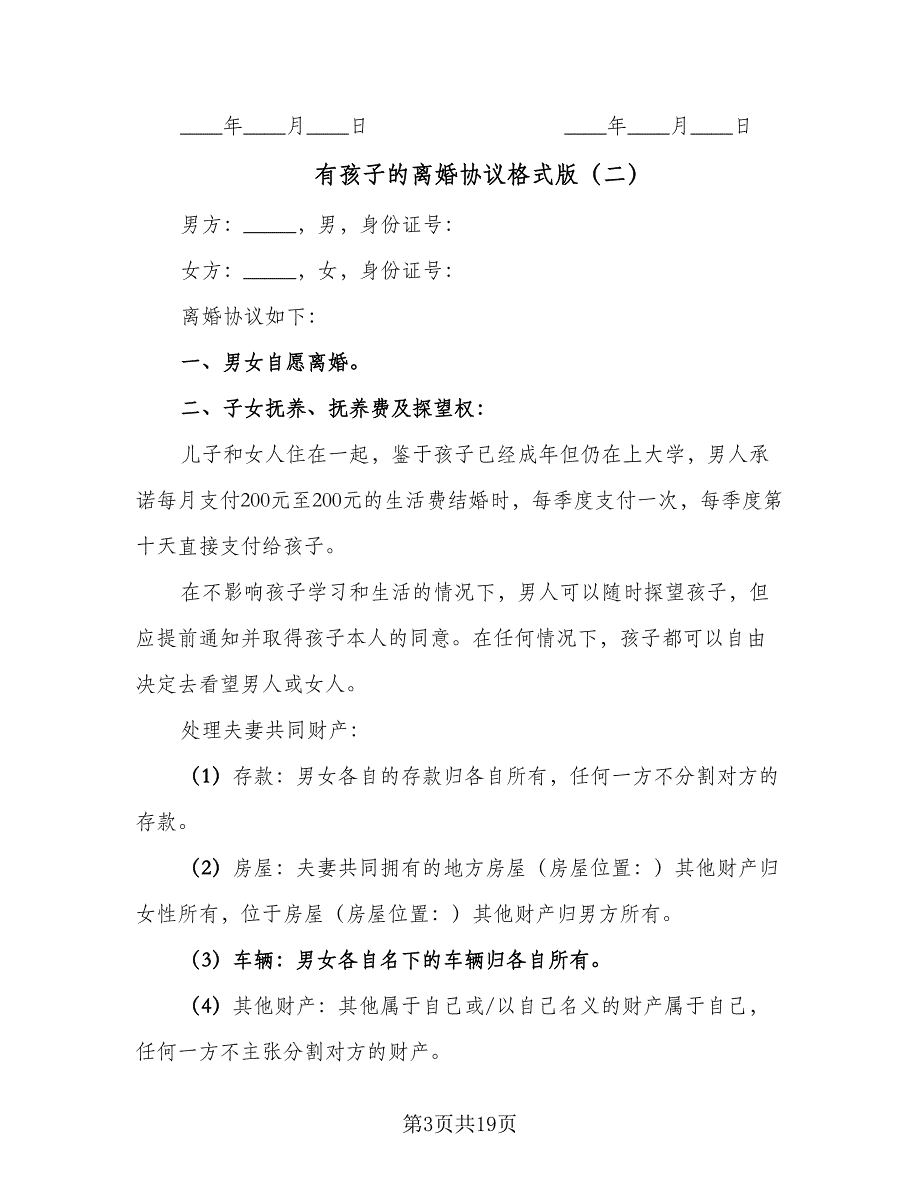 ____年____月____日 ____年____月____日
有孩子的离婚协议格式版（二）
男方：_____，男，身份证号：
女方：_____，女，身份证号：
离婚协议如下：
一、男女自愿离婚。
二、子女抚养、抚养费及探望权：
儿子和女人住在一起，鉴于孩子已经成年但仍在上大学，男人承
诺每月支付200元至200元的生活费结婚时，每季度支付一次，每季度第
十天直接支付给孩子。
在不影响孩子学习和生活的情况下，男人可以随时探望孩子，但
应提前通知并取得孩子本人的同意。在任何情况下，孩子都可以自由
决定去看望男人或女人。
处理夫妻共同财产：
（1）存款：男女各自的存款归各自所有，任何一方不分割对方的
存款。
（2）房屋：夫妻共同拥有的地方房屋（房屋位置：）其他财产归
女性所有，位于房屋（房屋位置：）其他财产归男方所有。
（3）车辆：男女各自名下的车辆归各自所有。
（4）其他财产：其他属于自己或/以自己名义的财产属于自己，
任何一方不主张分割对方的财产。
第3页共19页